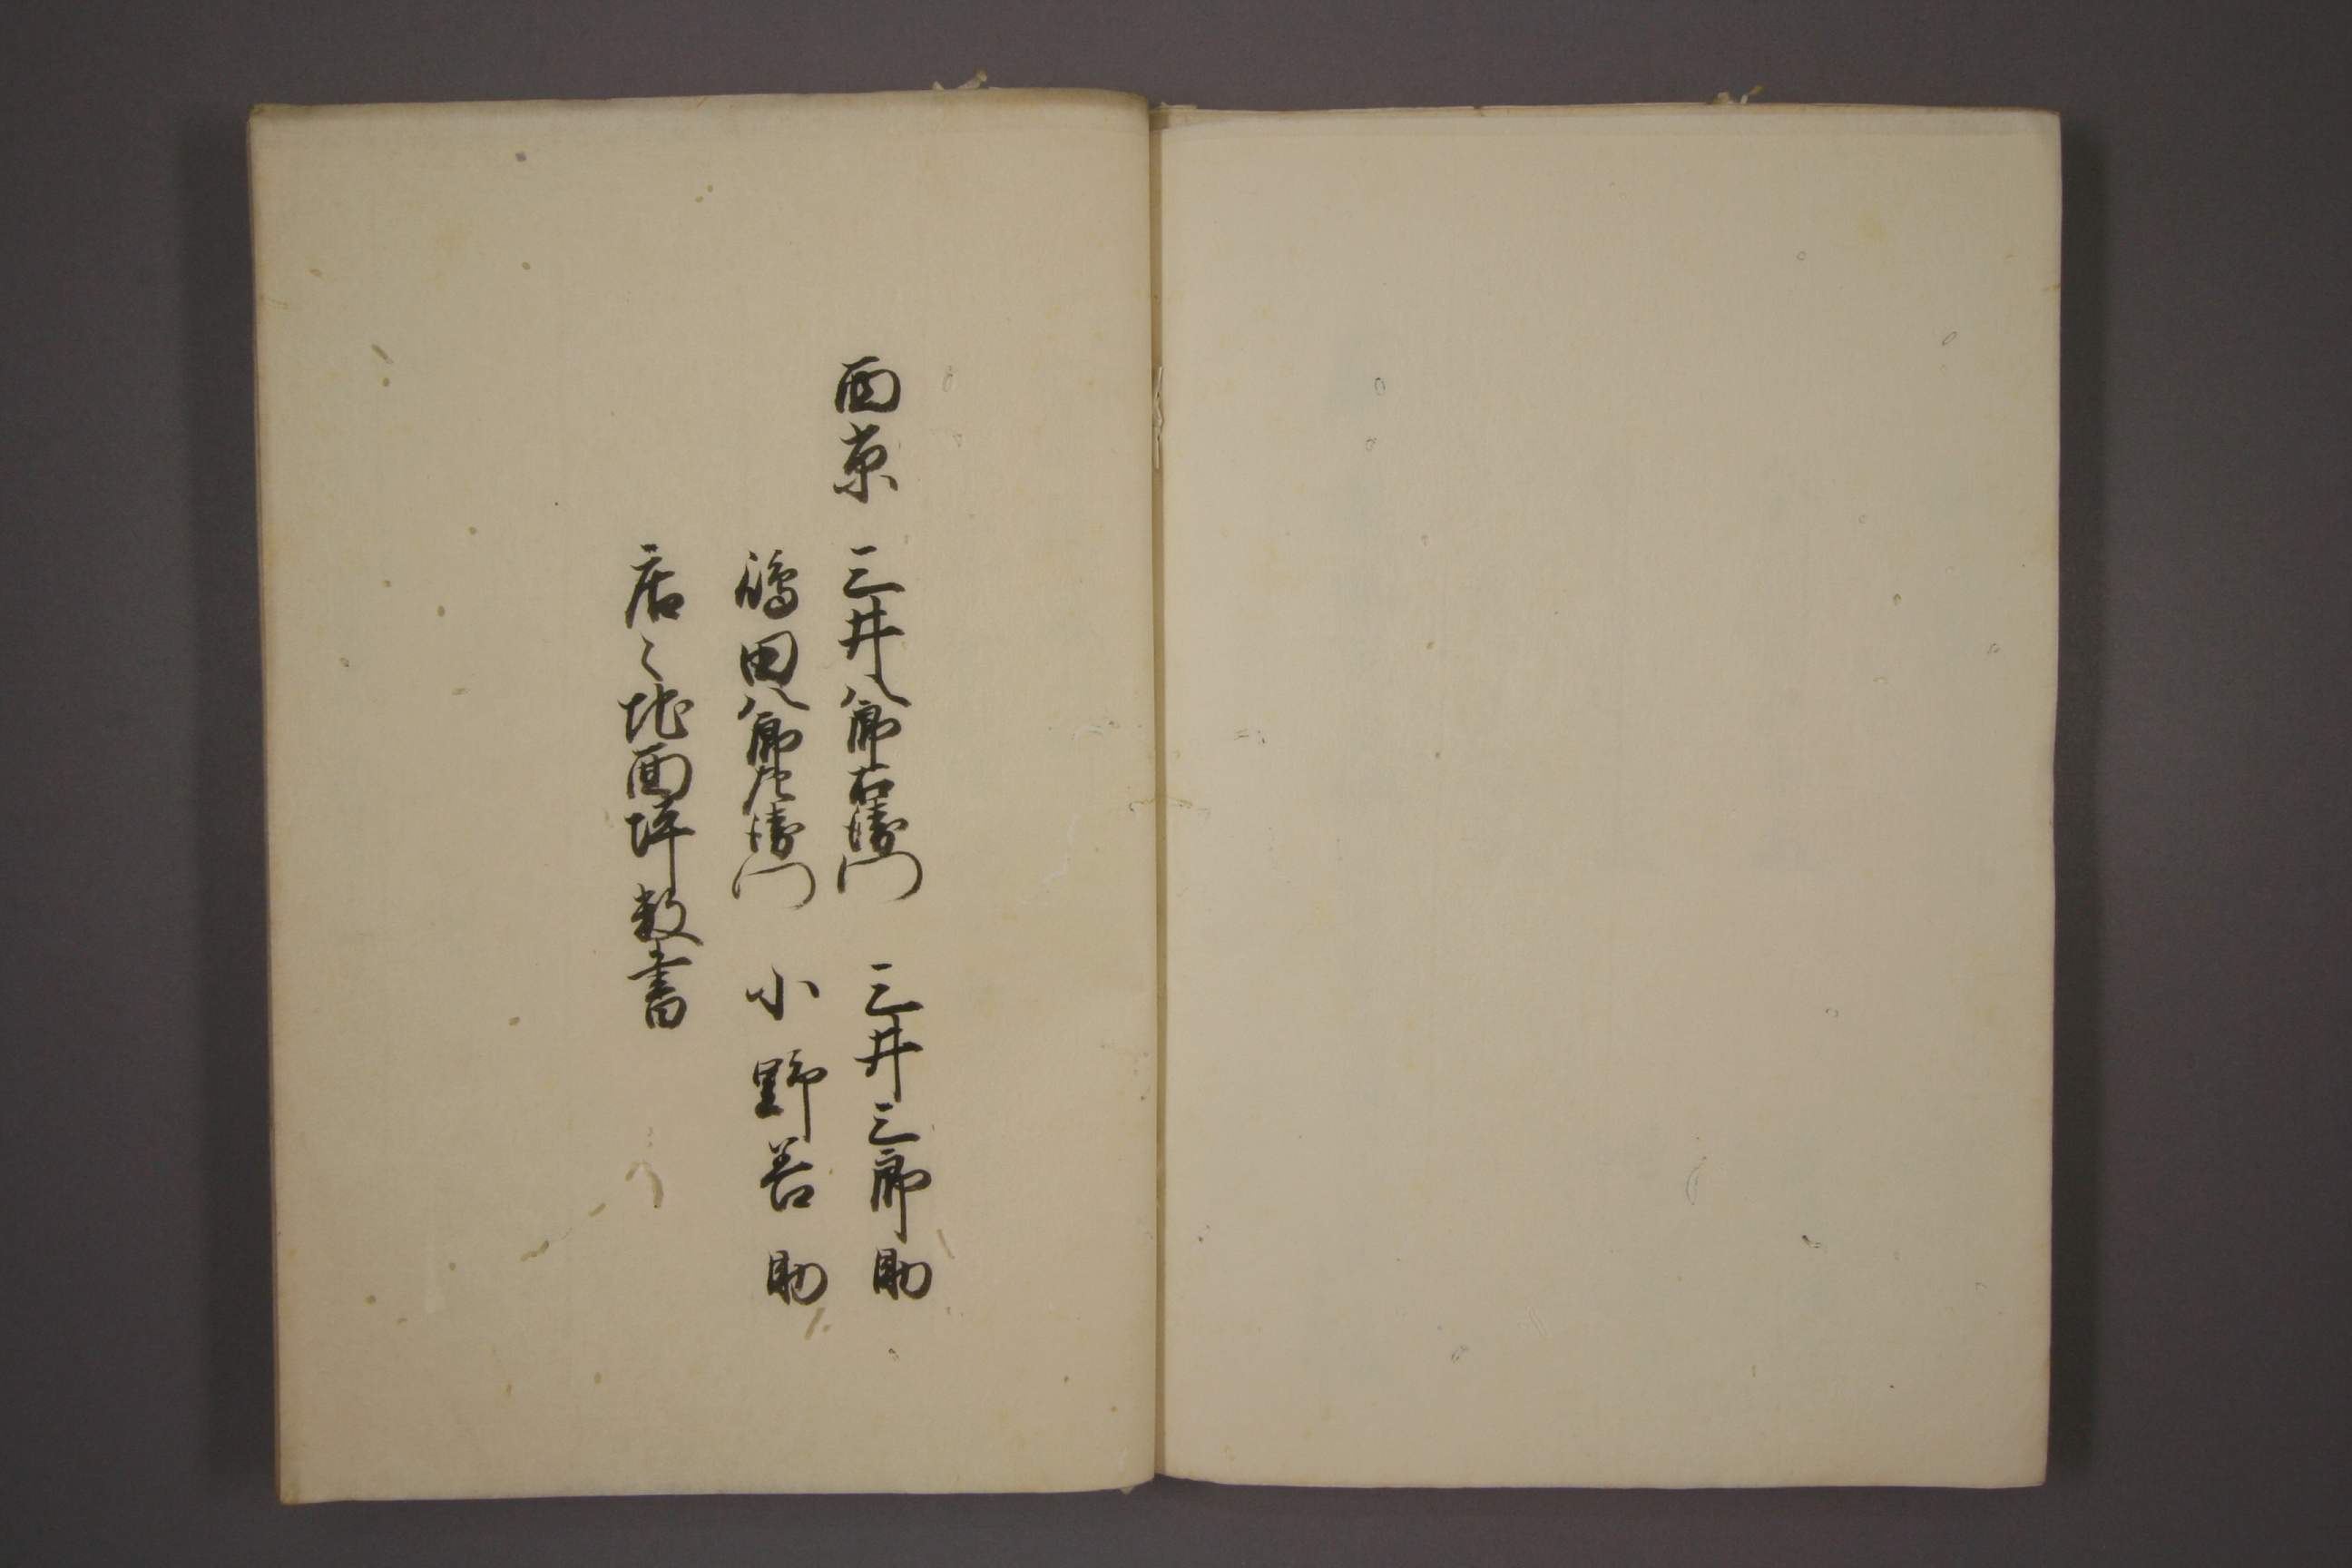 西京 三井八郎右衛門 三井三郎助
嶋田八郎左衛門 小野善助
店々地面坪数書